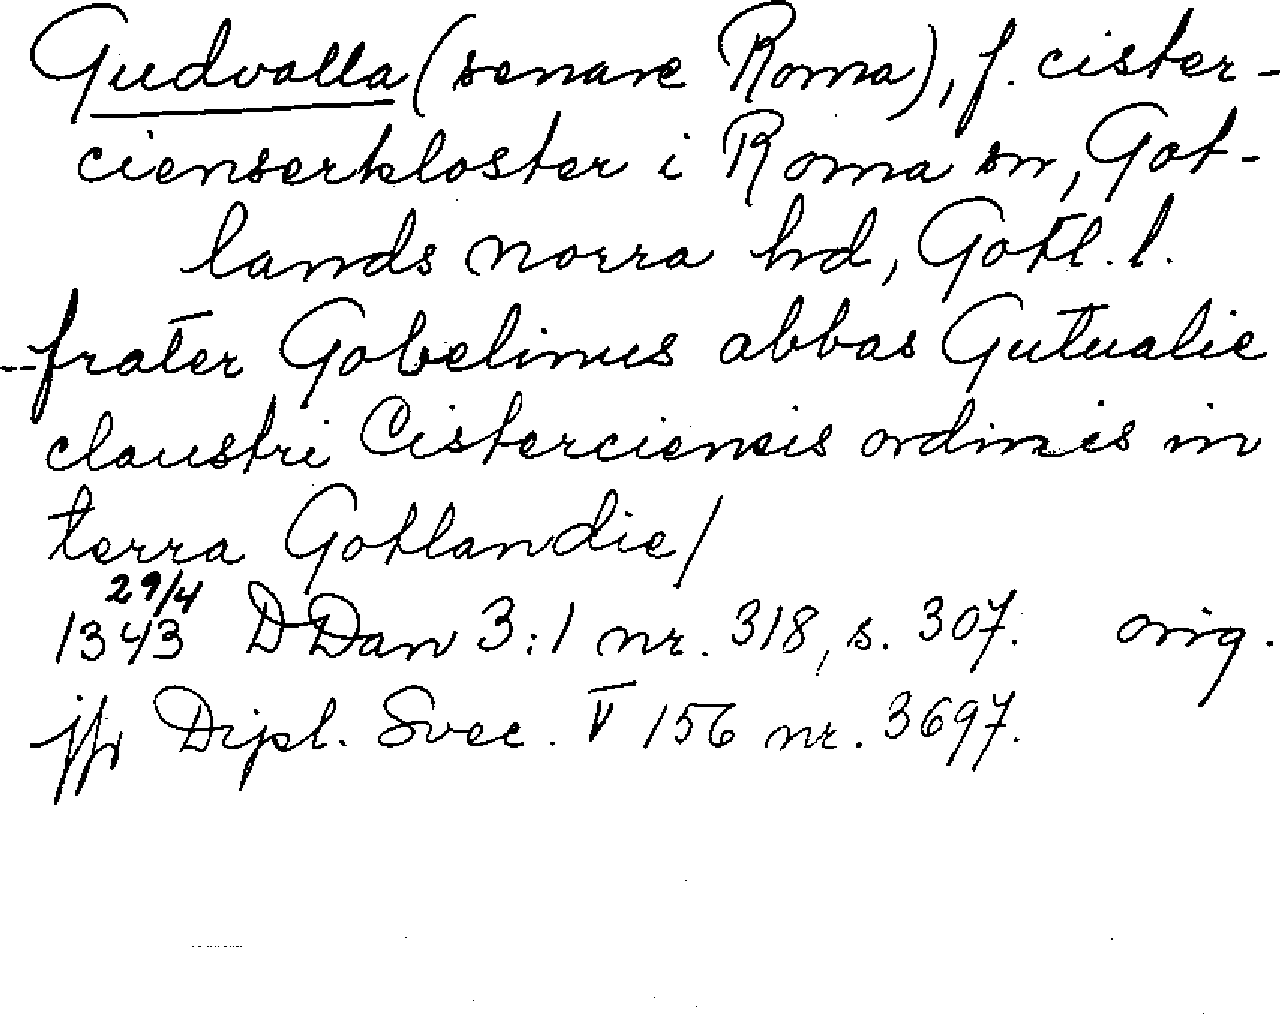 Gudvalla (senare Roma), f. cister-
cienserkloster i Roma sn, Got-
lands norra hd, Gotl. l.
--frater Gobelinus abbas Gutualie
claustri Cisterciensis ordinis in
terra Gotlandie/
29/4
1343 DDan 3:1 nr. 318, s. 307. orig.
jfr Dipl. Svec. V 156 nr. 3697.